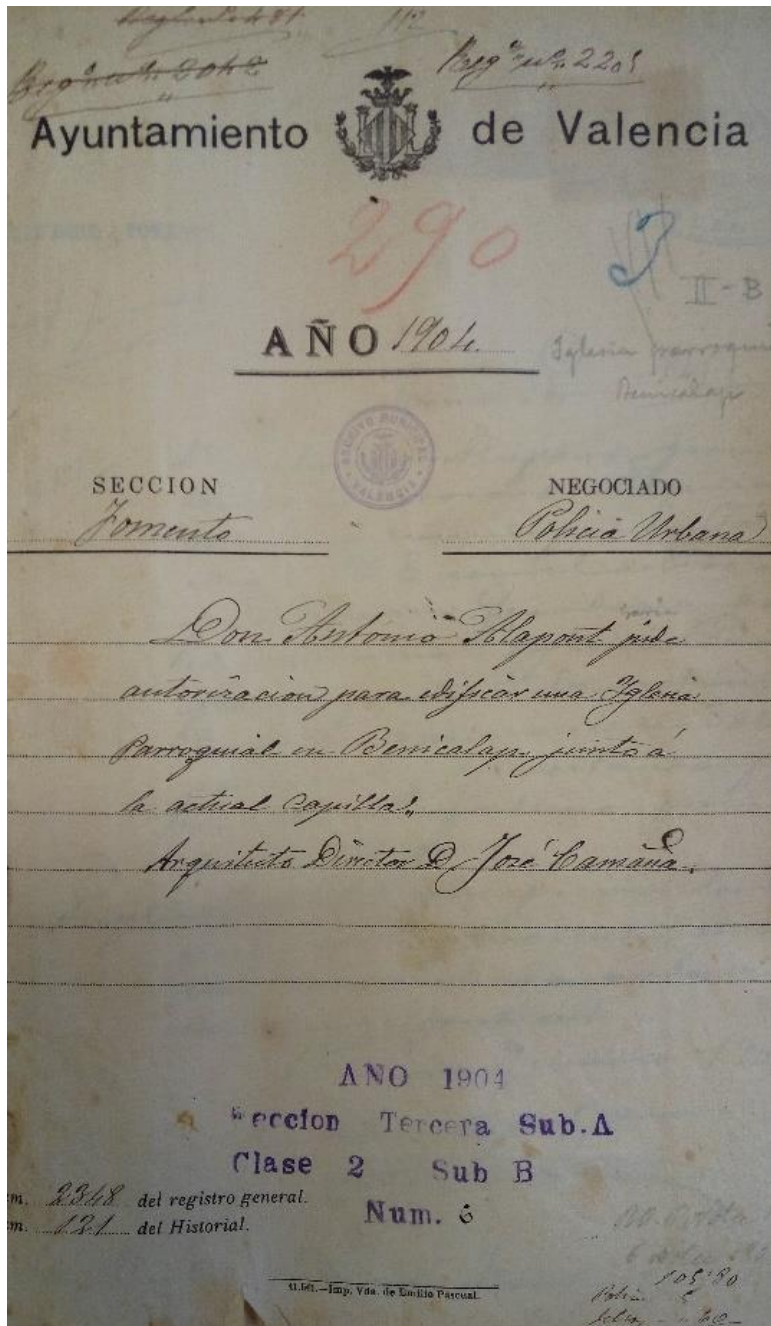 Reg.º nu.º 2205
Ayuntamiento de Valencia
290
II-B
AÑO 1904.
Iglesia parroquial
Benicalap
ARCHIVO MUNICIPAL
VALENCIA
SECCION NEGOCIADO
Fomento Policia Urbana
Don Antonio Alapont pide
autorizacion para edificar una Iglesia
Parroquial en Benicalap junto á
la actual Capilla.
Arquitecto Director D. José Camaña.
AÑO 1904
eccion Tercera Sub.A
Clase 2 Sub B
m. 2348 del registro general.
Num. 6
m. 121 del Historial.
Imp. Vda. de Emilio Pascual.
105'80